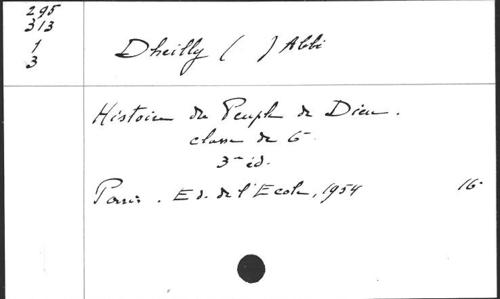 295
313
1
3
Dheilly ( ) Abbé
Histoire du Peuple de Dieu.
classe de 6e
3e éd.
Paris. Ed. de l'Ecole, 1954 16°